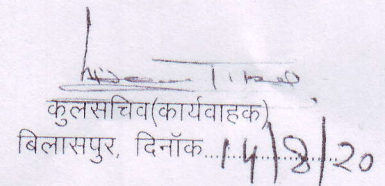 कुलसचिव(कार्यवाहक)
बिलासपुर, दिनॉक...14/8/20